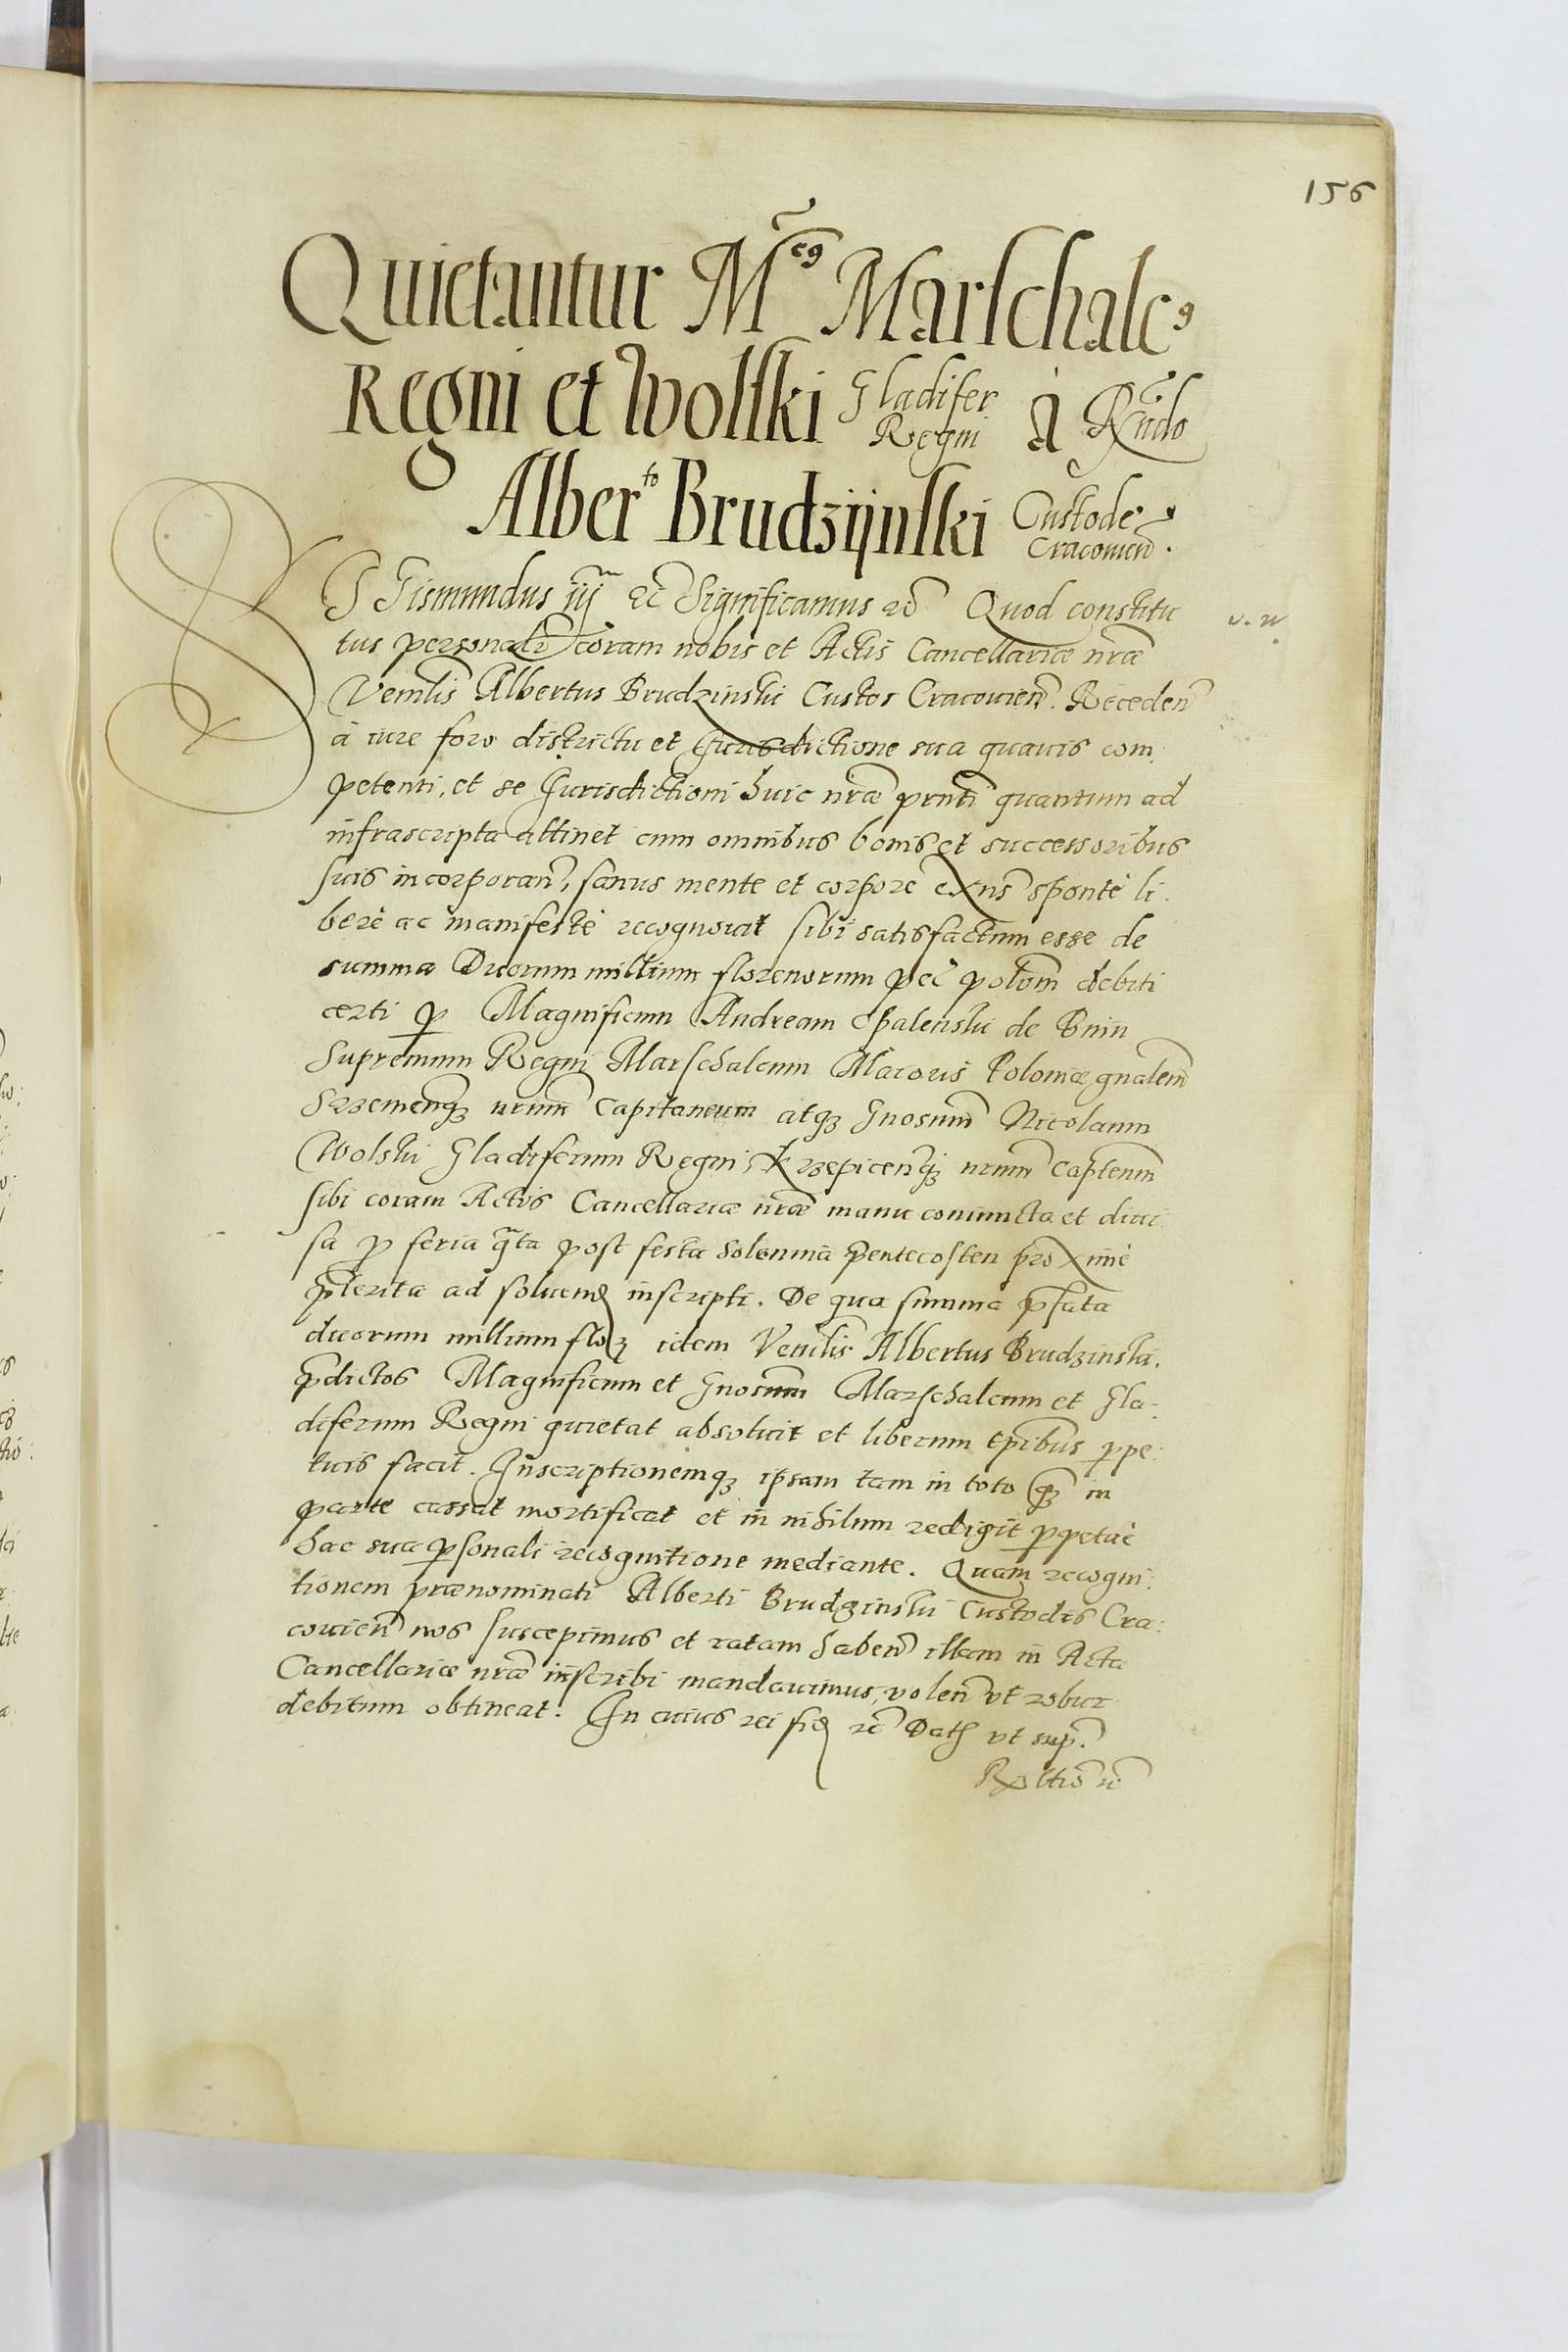 156
Quietantur Mcꝰ Marschalcꝰ
Regni et Wolski Gladifer Regni à Rndo
Alberto Brudzijnski Custode Cracovien.
SIgismundus iij etc Significamus etc Quod constitu
tus personalr coram nobis et Actis Cancellariæ nræ
Venlis Albertus Brudzinski Custos Cracovien. Receden
à iure foro districtu et Jurisdictione sua quavis com:
petenti, et se Jurisdictioni huic nræ prnti quantum ad
infrascripta attinet cum omnibus bonis et successoribus
suis incorporan, sanus mente et corpore exns spontè li:
berè ac manifestè recognovit sibi satisfactum esse de
summa Duorum millium florenorum pec polom debiti
certi p Magnificum Andream Opalenski de Bnin
Supremum Regni Marschalcum Maioris Poloniæ gnalem
Srzemenqȝ nrum Capitaneum atqȝ Gnosum Nicolaum
Wolski Gladiferum Regni, Krzepicenqȝ nrum Captenm
sibi coram Actis Cancellariæ nræ manu coniuncta et divi:
sa p feria qta post festa solenma Pentecosten proximè
pterita ad solvend inscripti. De qua summa pfata
duorum millium flor idem Venlis Albertus Brudzinski.
pdictos Magnificum et Gnosum Marschalcum et Gla:
diferum Regni quietat absolvit et liberum tpibus ppe:
tuis facit. Inscriptionemqȝ ipsam tam in toto qȝ in
parte cassat mortificat et in nihilum redigit ppetuè
hac sua psonali recognitione mediante. Quam recogni:
tionem prænominati Alberti Brudzinski Custodis Cra:
covien nos suscepimus et ratam haben illam in Acta
Cancellariæ nræ inscribi mandavimus, volen vt robur
debitum obtineat. In cuius rei fid etc Dat vt sup.
Rltio etc